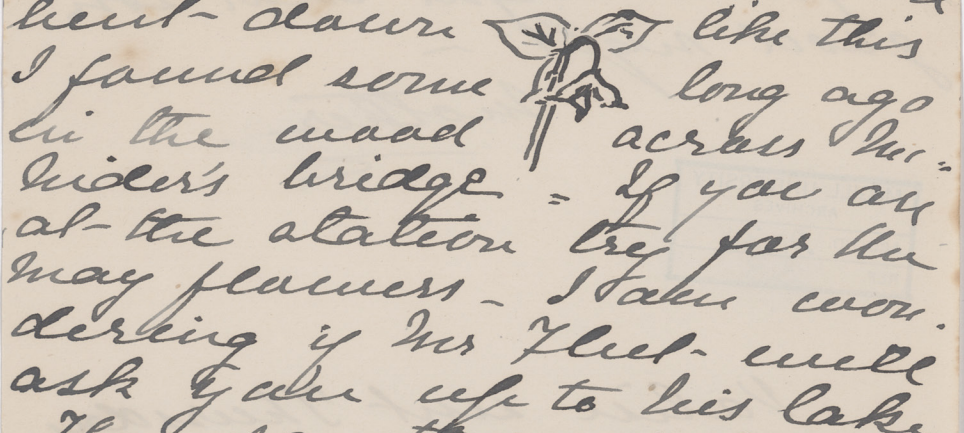 bent down like this
I found some long ago
in the wood across Mc=
Nider's bridge = If you are
at the station try for the
May flowers - I am won-
dering if Mr Flut will
ask you up to his lake